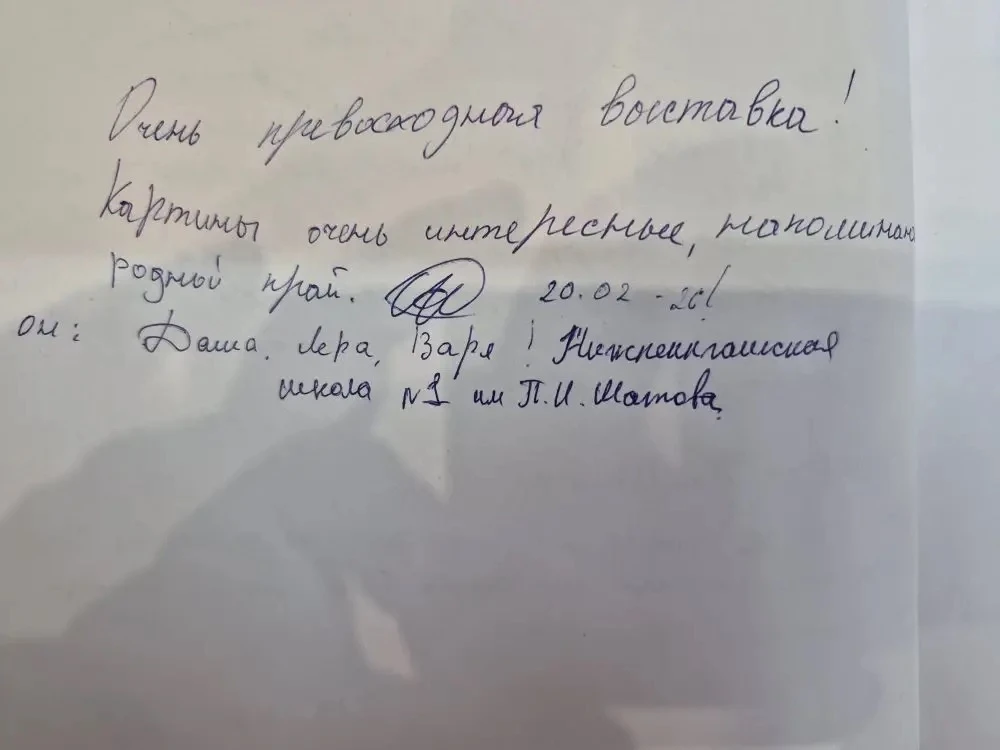 Очень превосходная выставка!
Картины очень интересные, напоминают
родной край. 20.02
от: Даша, Лера, Варя! Нижнеингашская
школа №1 им П.И. Шатова